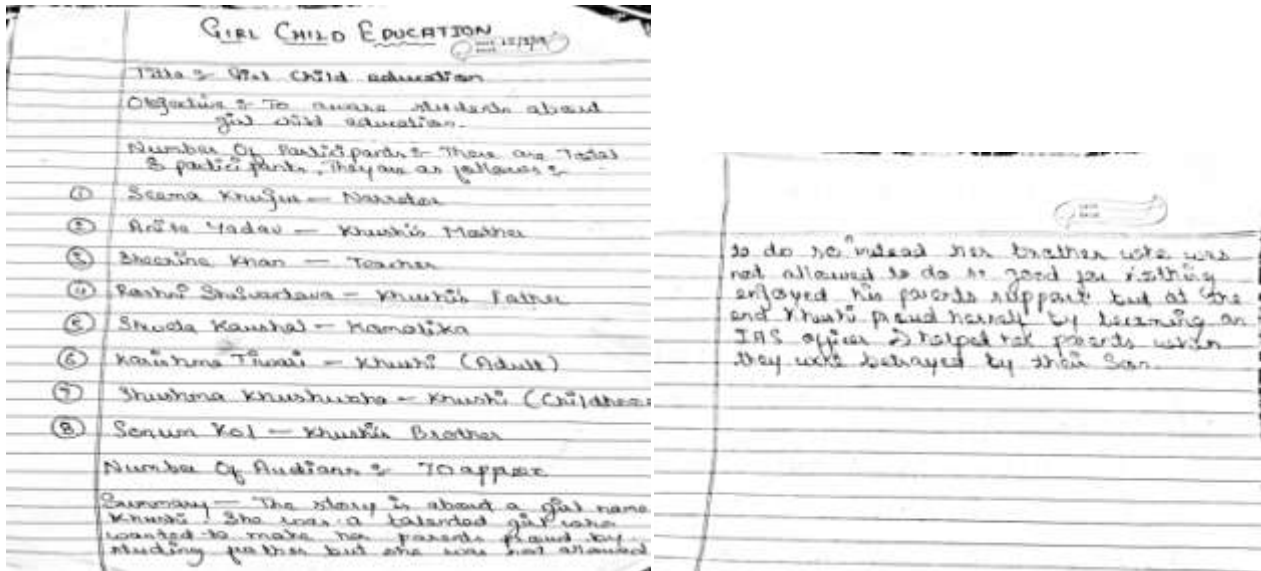 GIRL CHILD EDUCATION
Title :- Girl Child education
Objective :- To aware students about
girl child education.
Number Of Participants :- There are Total
8 participants. They are as follows :-
① Seema - Narrator
② Anita Yadav - Khushi's Mother
③ Khan - Teacher
④ Rashni Srivastava - Khushi's Father
⑤ Kaushal - Kamalika
⑥ Karishma Tiwari - Khushi (Adult)
⑦ Shushma Khushwaha - Khushi (Childhoo
⑧ Sonum Kol - Khushi's Brother
Number Of Audians :- 70 approx
Summary - The story is about a girl name
Khushi. She was a talented girl who
wanted to make her parents proud by
studing but she was not allowed
to do so instead her brother who was
not allowed to do so good for nothing
enjoyed his parents support but at the
end Khushi proud herself by becoming an
IAS officer & helped her parents when
they were betrayed by their Son.